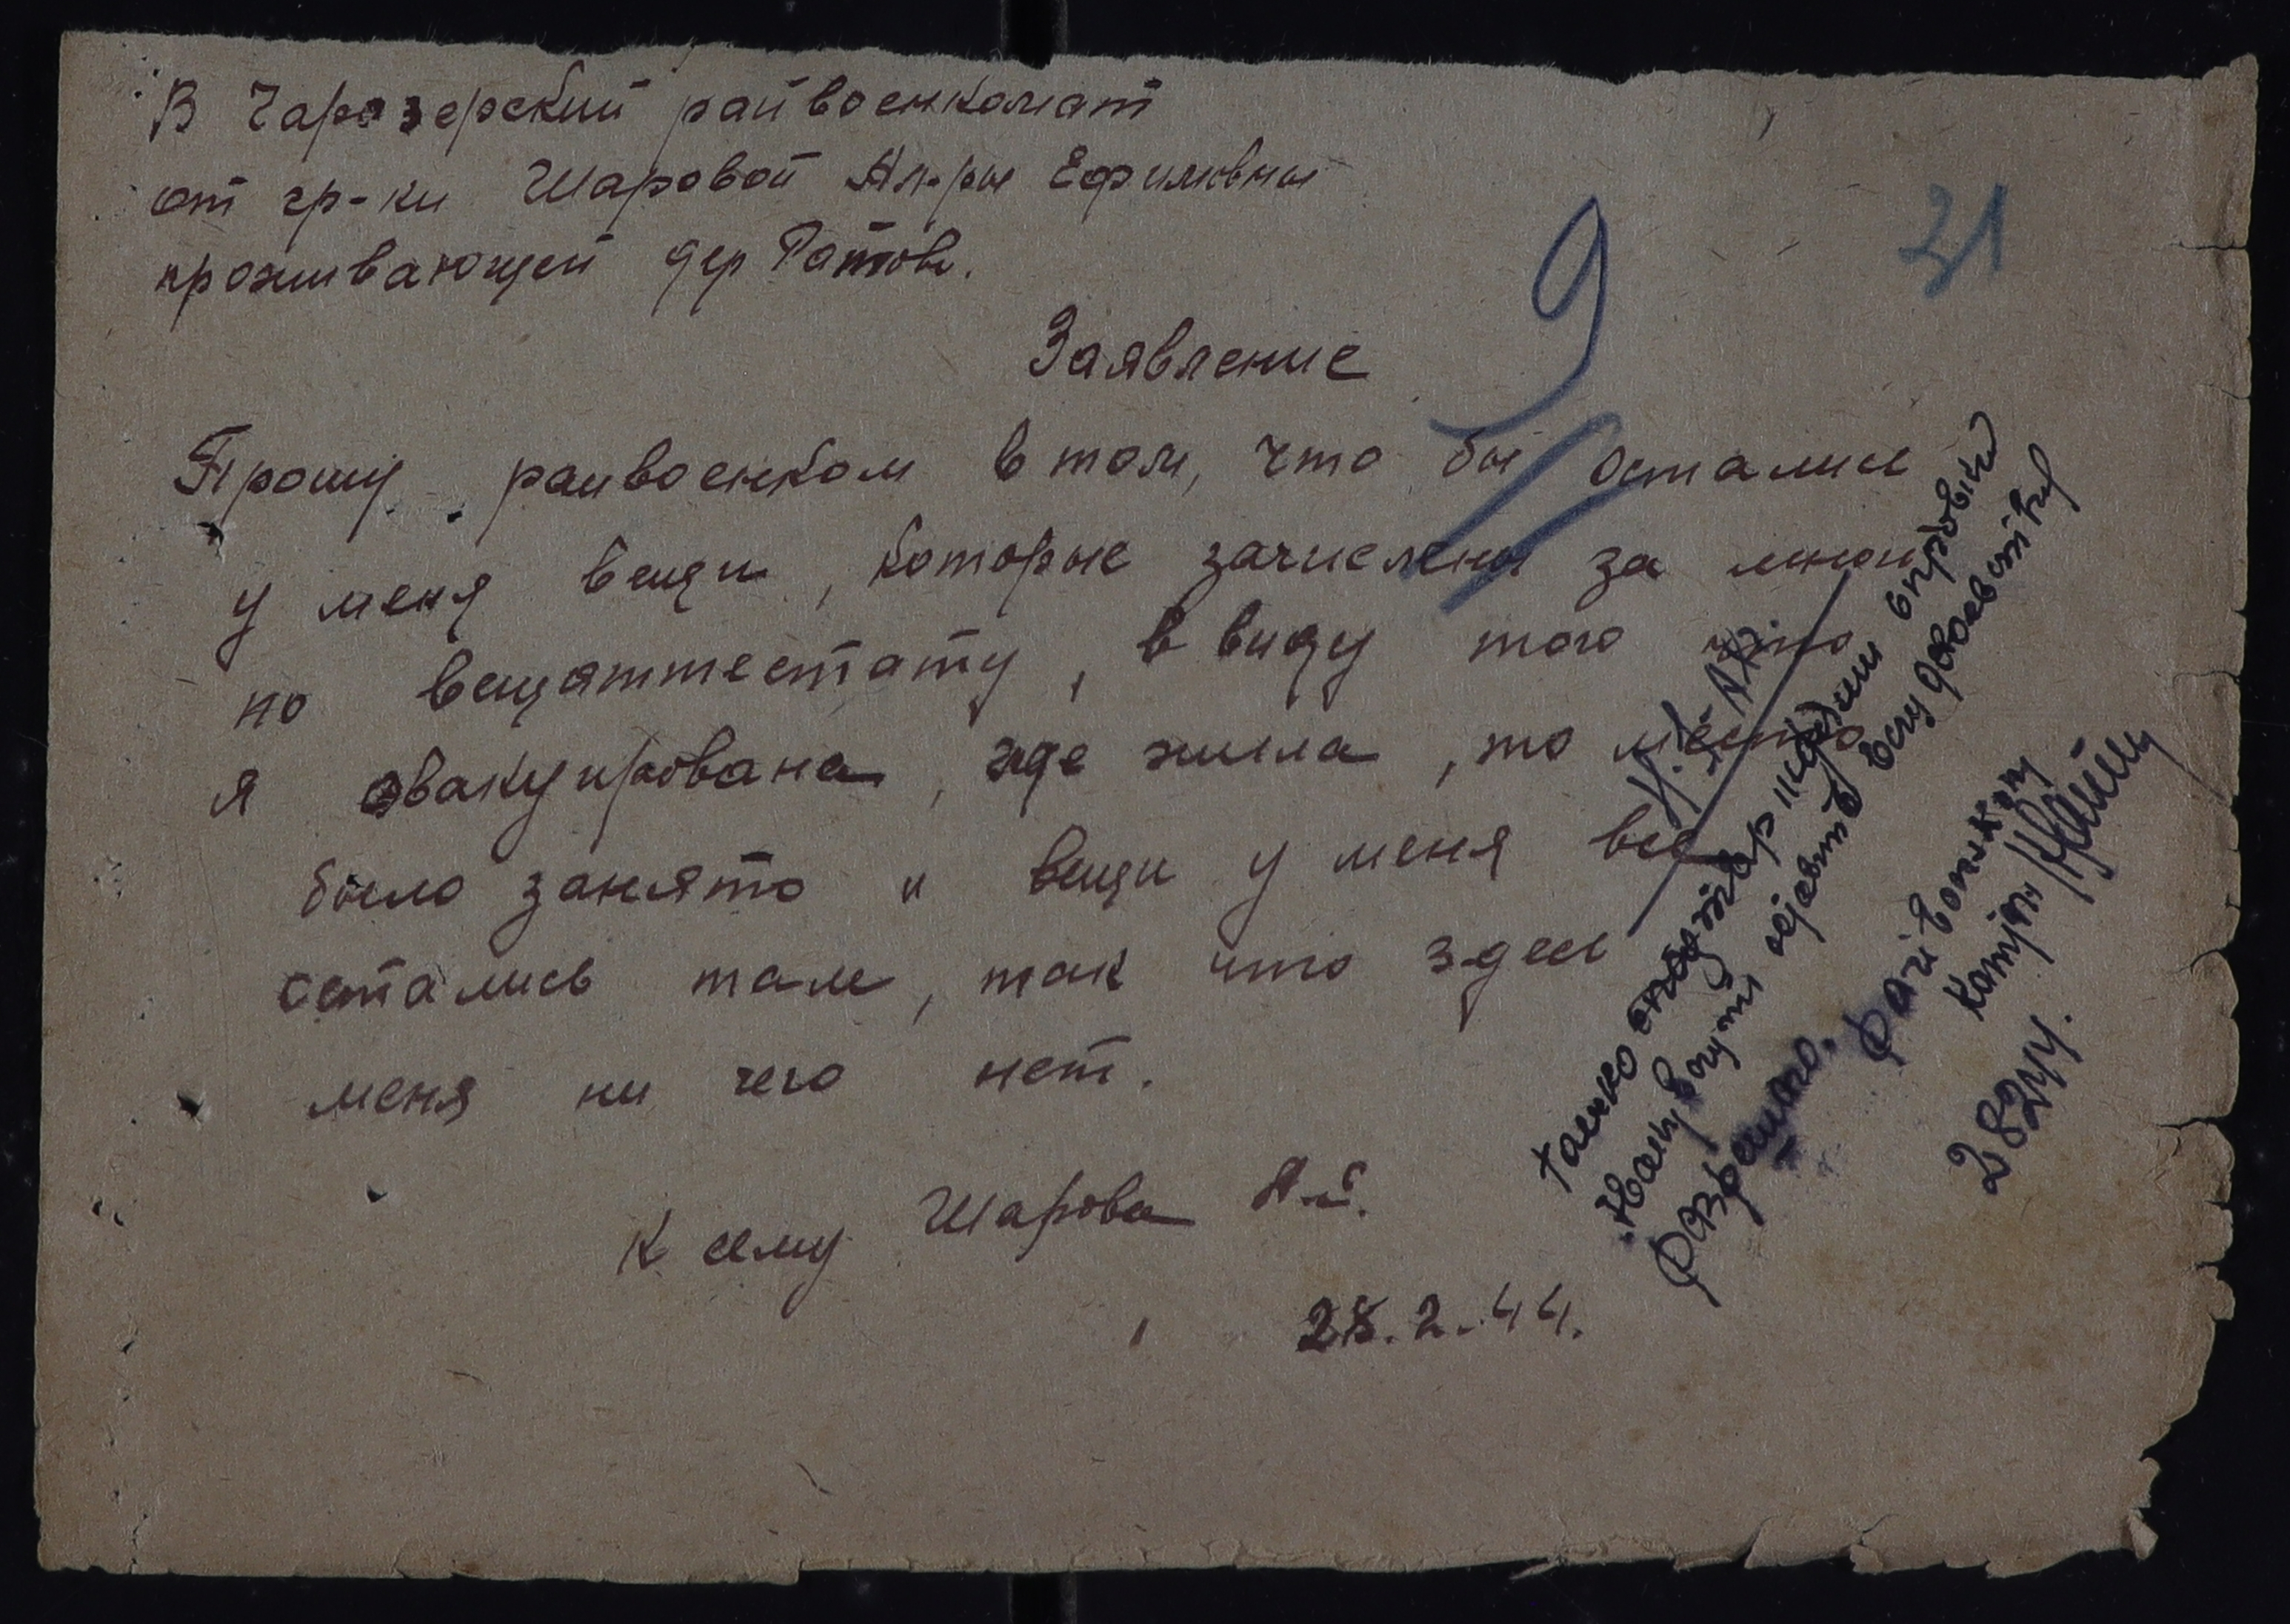 В Чарозерский райвоенкомат
от гр-ки Шаровой Ал-ры Ефимовны
проживающей дер Ратово.
31
9
Заявление
Прошу раивоенком в том, что бы остались
у меня вещи, которые зачислены за мной
по вещаттестату, в виду того что
я эвакуирована, где жила, то место
было занято и вещи у меня все
остались там, так что здесь
меня ни чего нет.
К сему Шарова А.Е.
28.2.44.
Разрешаю. Райвоенком
28/2 44.